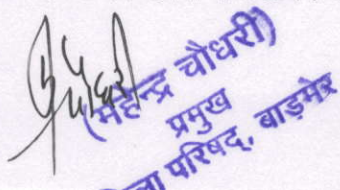 (महेन्द्र चौधरी)
प्रमुख
ला परिषद्, बाड़मेर